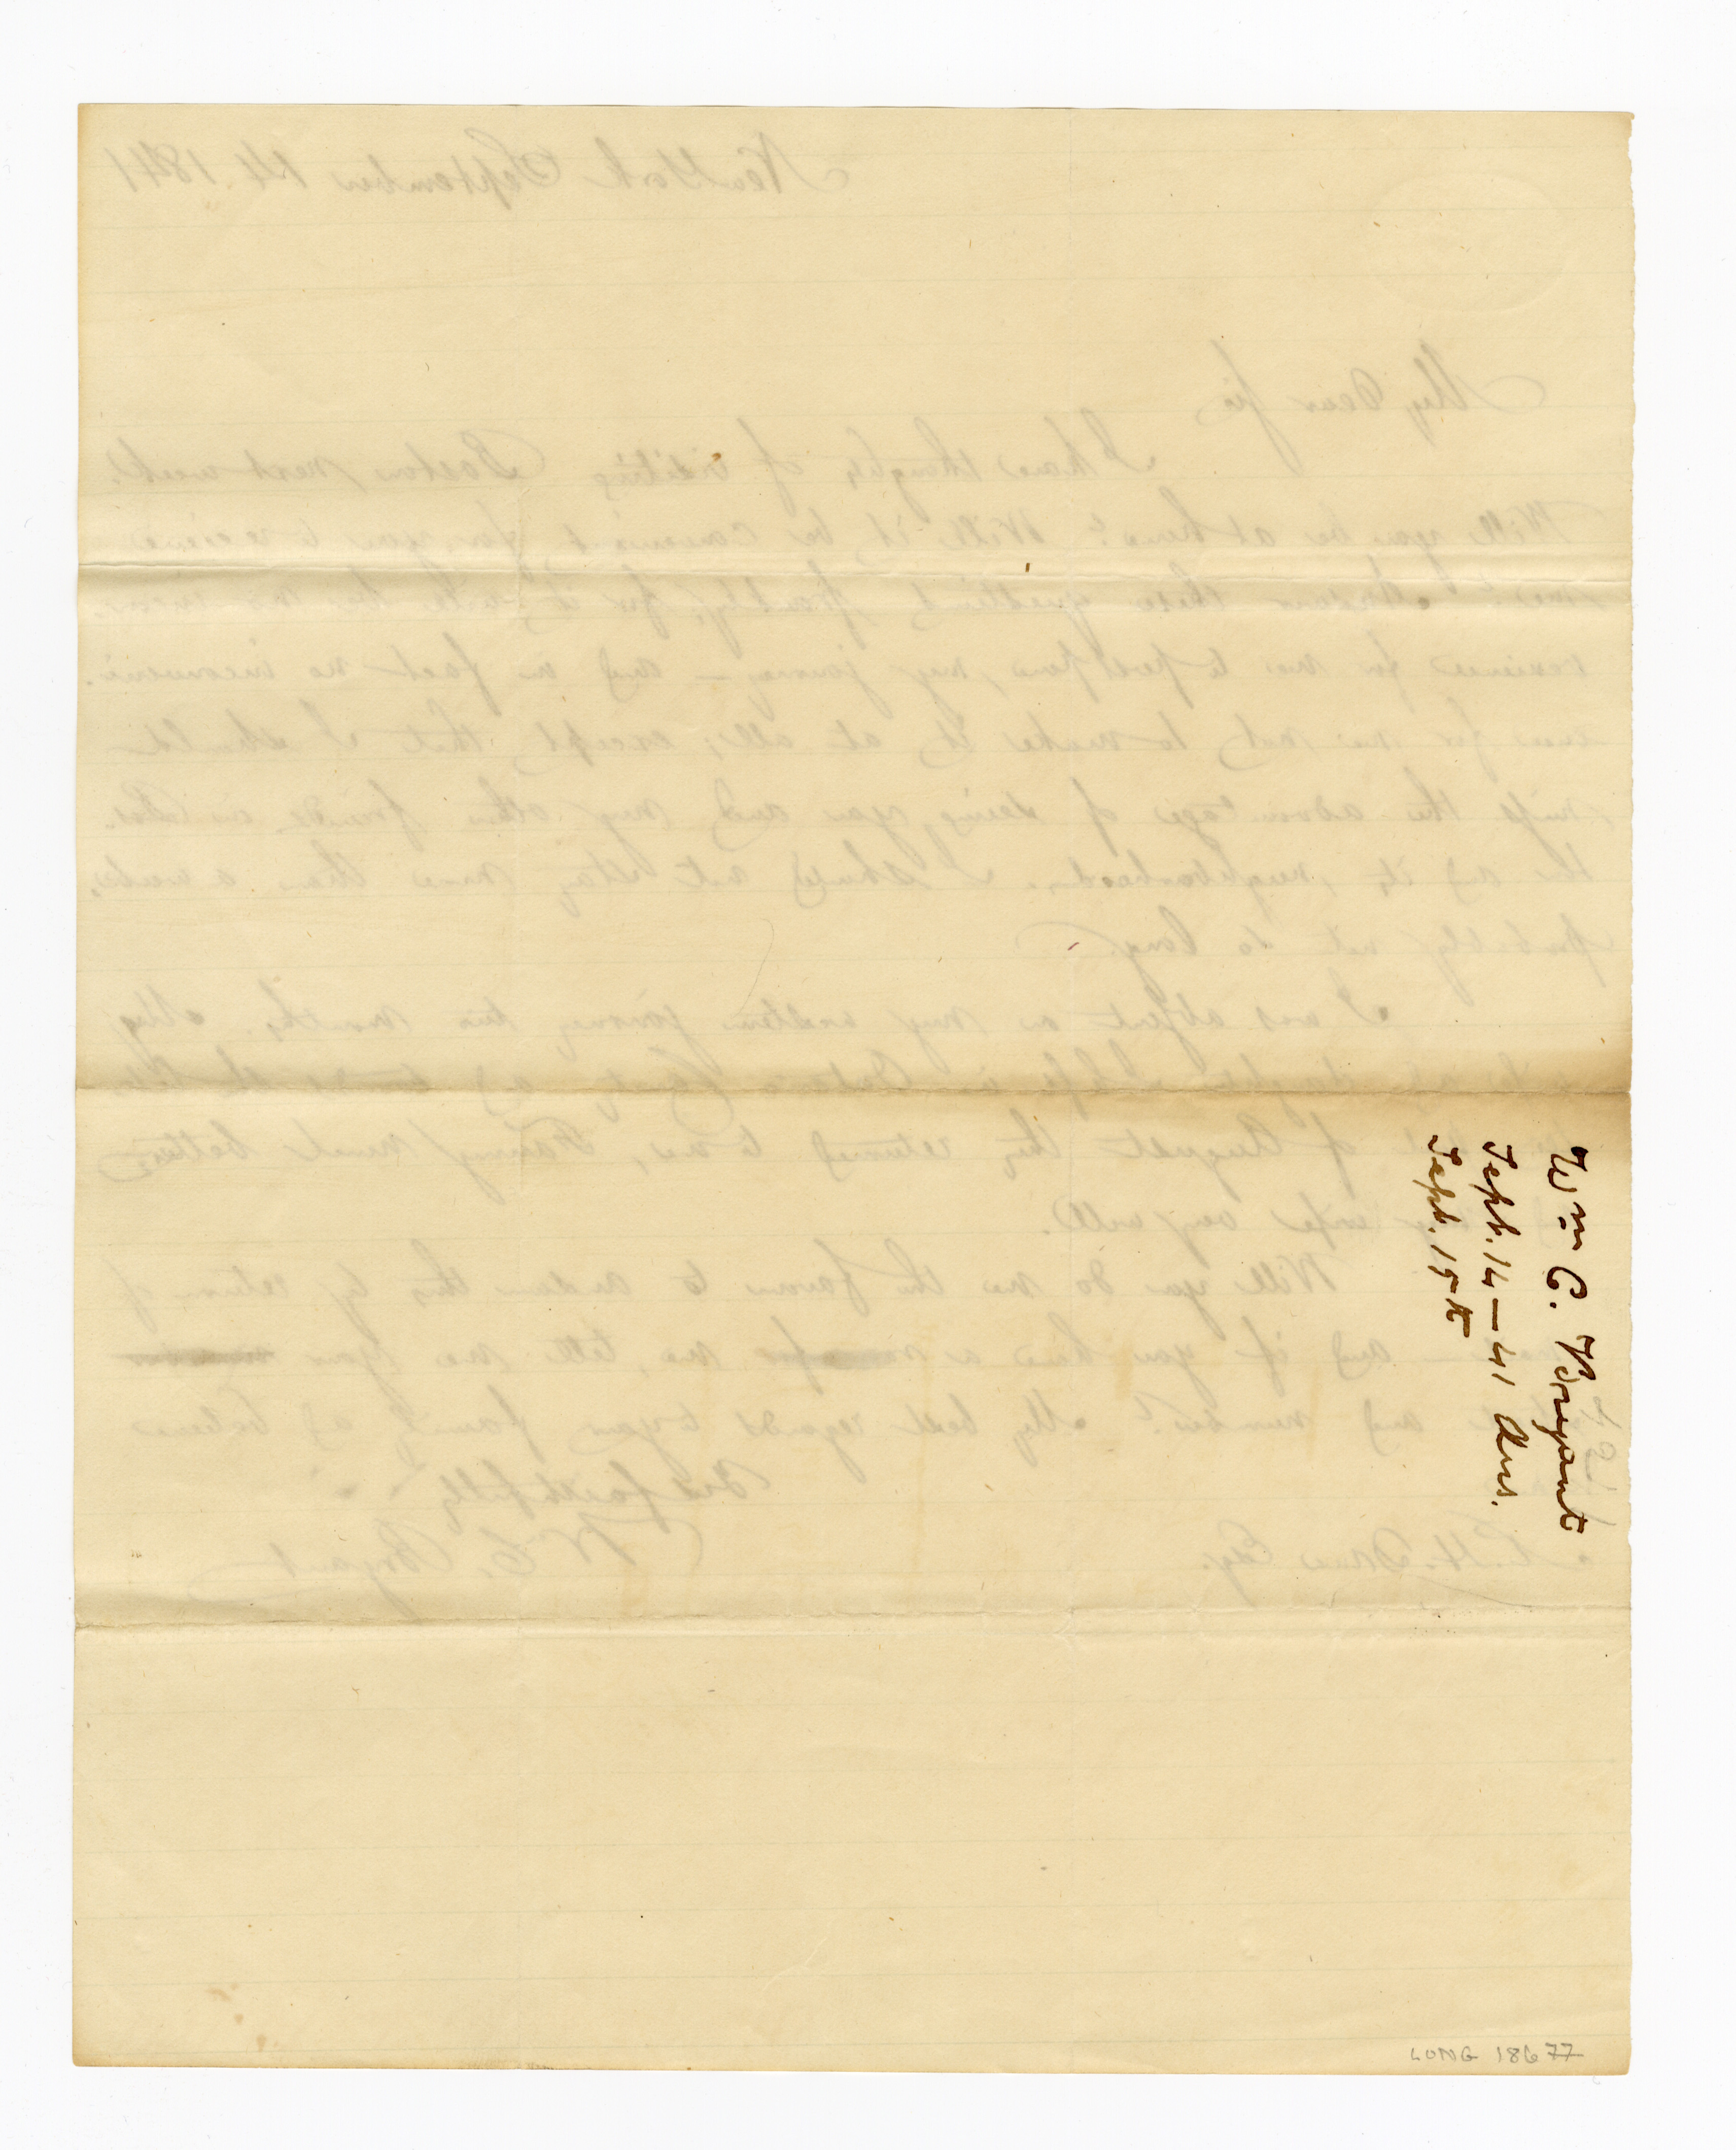 New York September 14 1841
My dear sir
I have thoughts of visiting Boston next week.
Will you be at home? Will it be convenient for you to receive
me? Answer these questions frankly, for it will be no incon-
venience for me to postpone my journey — and in fact no inconveni-
ence for me not to make it at all, except that I should
miss the advantage of seeing you and my other friends in
the and its neighborhood. I should not stay more than a week,
probably not so long.
I was absent on my western journey two months. My
of August they returned to me, Fanny much better
my wife very well.
Will you do me the favour to answer this by return of
and if you have a room for me, tell me your
and number? My best regards to your family and believe
Yrs faithfully
W. C. Bryant
R. H. Dana Esq.
Wm C. Bryant
Sept. 14 — 41 Ans.
Sept. 15th
LONG 18677